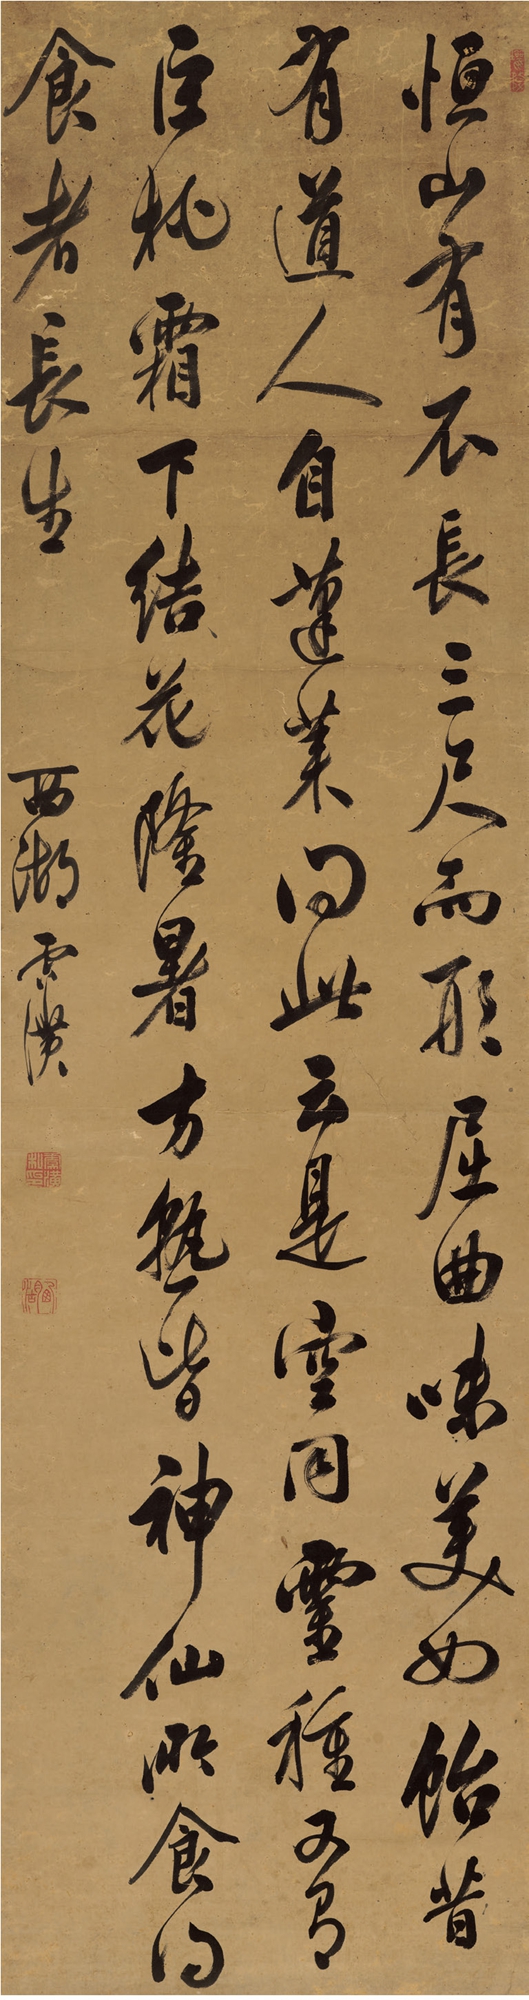 恒山有不長三尺而形屈曲味美如飴昔
有道人自蓬萊得此云是空同靈種又有
巨桃霜下結花隆暑方熟皆神仙所食得
食者長生
西湖雲漢